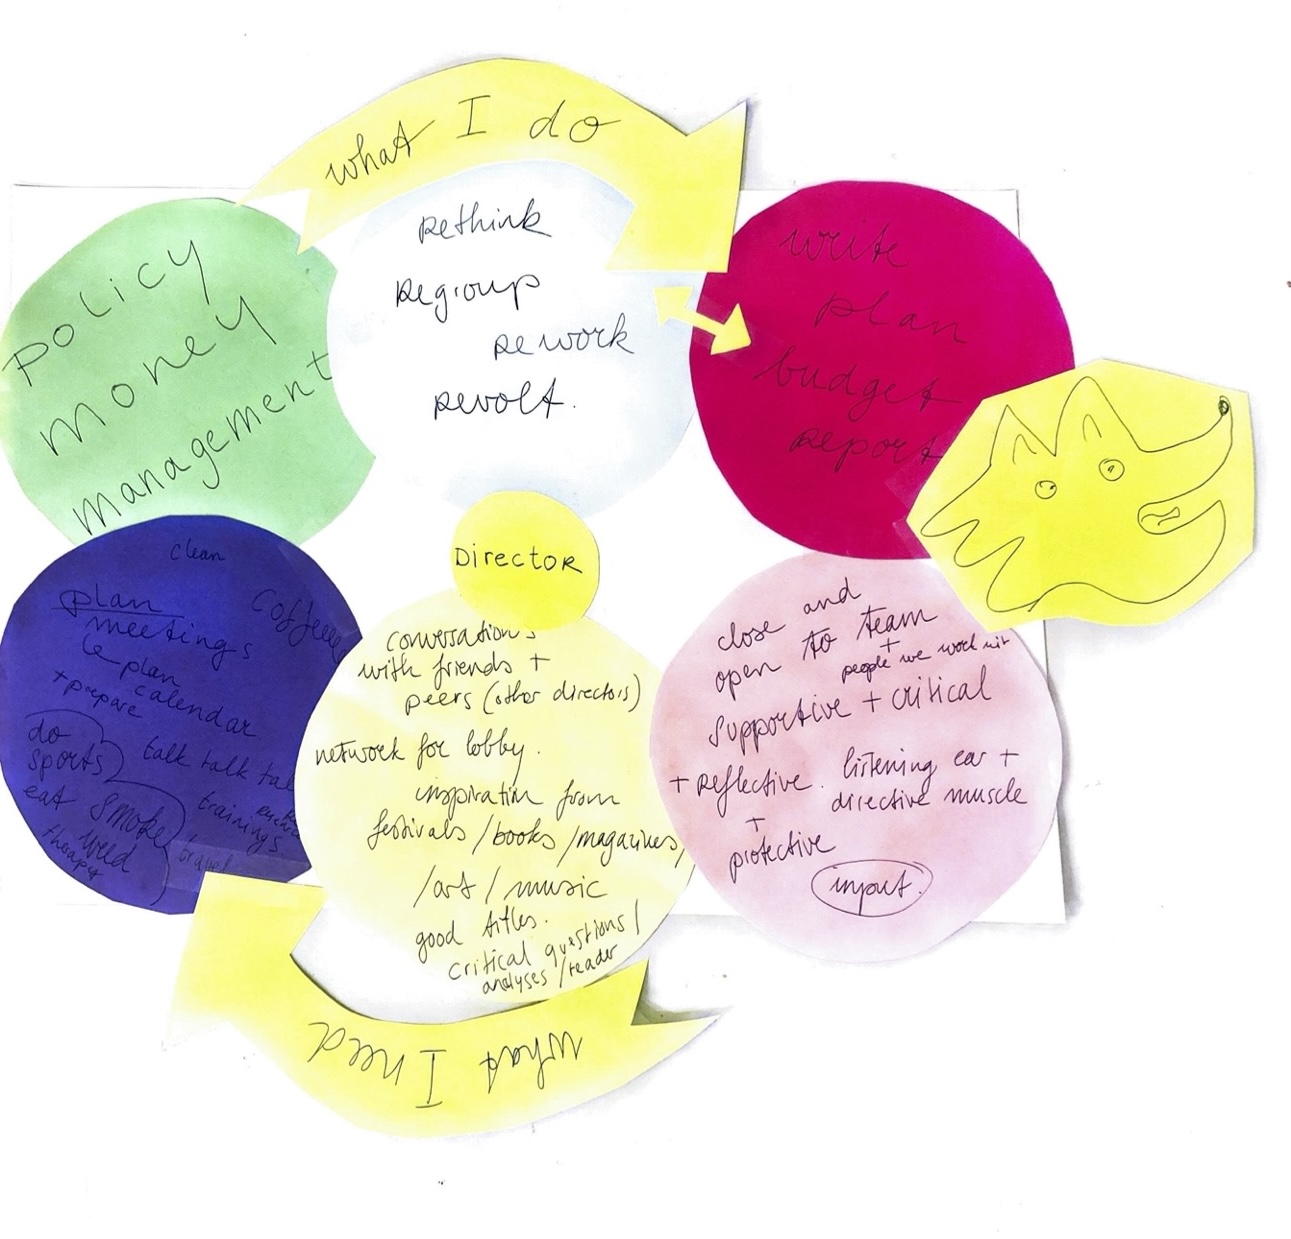 what I do
Policy
money
management
Rethink
Regroup
Rework
Revolt.
write
plan
budget
report
Director
clean
plan
Coffeeee
meetings
plan
+ prepare
calendar
do
sports
talk talk tal
eat
smoke
trainings
weed
therapy
travel
conversations
with friends +
peers (other directors)
network for lobby.
inspiration from
festivals / books / magazines /
/ art / music
good titles.
critical questions /
analyses / reader
close and
open to team
+
people we work wit
supportive + critical
+ reflective.
listening ear +
directive muscle
+
protective
input.
what I need